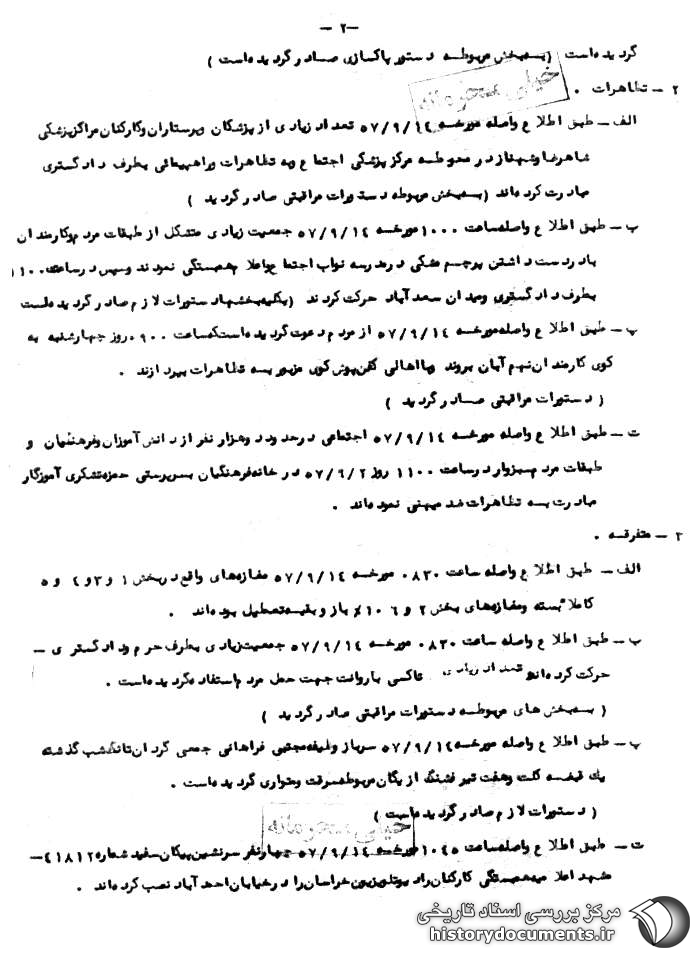 –۲ –
گردیده‌است (به‌بخش مربوطه دستور پاکسازی صادر گردیده‌است )
خیلی محرمانه
۲ – تظاهرات .
الف – طبق اطلاع واصله مورخه ۵۷/۹/۱۴ تعداد زیادی از پزشکان وپرستاران وکارکنان مراکزپزشکی
شاهرضا وشهناز در محوطه مرکز پزشکی اجتماع وبه تظاهرات وراهپیمائی بطرف دادگستری
مبادرت کرده‌اند (به‌بخش مربوطه دستورات مراقبتی صادر گردید )
پ – طبق اطلاع واصله‌ساعت ۱۰۰۰ مورخه ۵۷/۹/۱۴ جمعیت زیادی متشکل از طبقات مردم‌وکارمندان
بادردست داشتن پرچم مشکی درمدرسه نواب اجتماع‌واعلام همبستگی نمودند وسپس درساعت ۱۱۰۰
بطرف دادگستری ومیدان سعدآباد حرکت کردند (بکلیه‌بخشها دستورات لازم صادر گردیده‌است
پ – طبق اطلاع واصله‌مورخه ۵۷/۹/۱۴ از مردم دعوت گردیده‌است‌که‌ساعت ۰۹۰۰ روز چهارشنبه به
کوی کارمندان نهم آبان بروند وبااهالی کفن‌پوش کوی مزبور به تظاهرات بپردازند .
( دستورات مراقبتی صادر گردید )
ت – طبق اطلاع واصله مورخه ۵۷/۹/۱۴ اجتماعی درحدود دوهزار نفر از دانش‌آموزان وفرهنگیان و
طبقات مردم سبزوار درساعت ۱۱۰۰ روز ۵۷/۹/۲ در خانه‌فرهنگیان بسرپرستی حمزه‌تشکری آموزگار
مبادرت به تظاهرات ضد میهنی نموده‌اند .
۳ – متفرقه .
الف – طبق اطلاع واصله ساعت ۰۸۳۰ مورخه ۵۷/۹/۱۴ مغازه‌های واقع دربخش ۱ و۳و ٤ و ۵
کاملا" بسته ومغازه‌های بخش ۲ و ۶ ۱۰٪ باز وبقیه‌تعطیل بوده‌اند .
پ – طبق اطلاع واصله ساعت ۰۸۳۰ مورخه ۵۷/۹/۱۴ جمعیت‌زیادی بطرف حرم ودادگستری –
حرکت کرده‌اند تعداد زیادی تاکسی باروانت جهت حمل مردم‌استفاده‌گردیده‌است .
( به‌بخش های مربوطه دستورات مراقبتی صادر گردید )
پ – طبق اطلاع واصله مورخه ۵۷/۹/۱۴ سرباز وظیفه‌مجتبی فراهانی جمعی گردان‌تانک‌شب گذشته
یک قبضه کلت وهفت تیر فشنگ از یگان مربوطه‌سرقت ومتواری گردیده‌است .
( دستورات لازم صادر گردیده‌است )
خیلی محرمانه
ت – طبق اطلاع واصله‌ساعت ۱۰٤۵ مورخه ۵۷/۹/۱۴ چهارنفر سرنشین پیکان سفید شماره ٤۱۸۱۲ –
مشهد اعلامیه‌همبستگی کارکنان رادیوتلویزیون خراسان را درخیابان احمدآباد نصب کرده‌اند .
مرکز بررسی اسناد تاریخی
historydocuments.ir